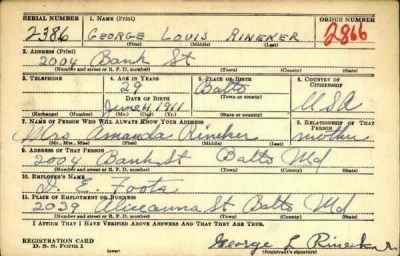 SERIAL NUMBER 1. NAME (Print) ORDER NUMBER
2386 GEORGE LOUIS RINEKER 2866
(First) (Middle) (Last)
2. ADDRESS (Print)
2004 Bank St
(Number and street or R. F. D. number) (Town) (County) (State)
3. TELEPHONE 4. AGE IN YEARS 5. PLACE OF BIRTH 6. COUNTRY OF CITIZENSHIP
29 Balto
DATE OF BIRTH (Town or county)
June 4 1911 USA
(Exchange) (Number) (Mo.) (Day) (Yr.) (State or country)
7. NAME OF PERSON WHO WILL ALWAYS KNOW YOUR ADDRESS 8. RELATIONSHIP OF THAT PERSON
Mrs Amanda Rineker mother
(Mr., Mrs., Miss) (First) (Middle) (Last)
9. ADDRESS OF THAT PERSON
2004 Bank St Balto Md
(Number and street or R. F. D. number) (Town) (County) (State)
10. EMPLOYER'S NAME
D. E. Foote
11. PLACE OF EMPLOYMENT OR BUSINESS
2039 Aliceanna St Balto Md
(Number and street or R. F. D. number) (Town) (County) (State)
I AFFIRM THAT I HAVE VERIFIED ABOVE ANSWERS AND THAT THEY ARE TRUE.
REGISTRATION CARD
D. S. S. Form 1 George L Rineker
(Registrant's signature)